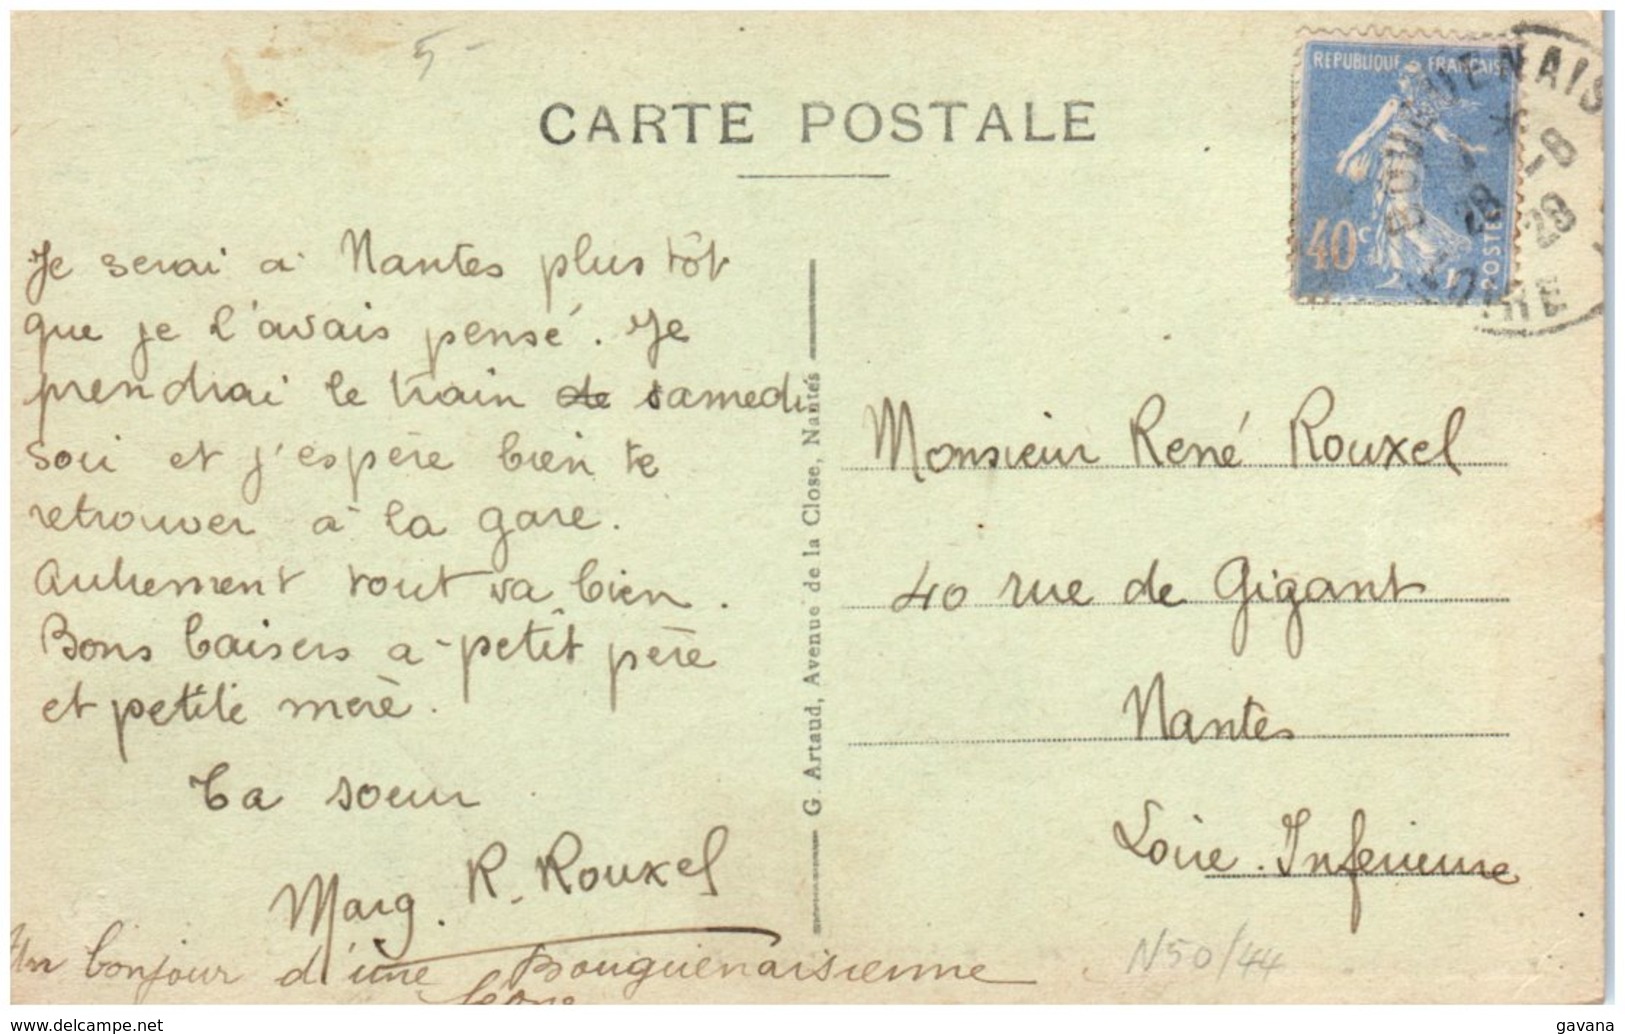 5-
CARTE POSTALE
REPUBLIQUE FRANÇAISE
40c
POSTES
BOUGUENAIS
* -8
28 28
LOIRE
Je serai à Nantes plus tôt
que je l'avais pensé. Je
prendrai le train de samedi
soir et j'espère bien te
retrouver à la gare.
Autrement tout va bien.
Bons baisers a petit père
et petite mère.
Ta soeur
Marg. R. Rouxel
Un bonjour d'une Bouguenaisienne
G. Artaud, Avenue de la Close, Nantes
Monsieur René Rouxel
40 rue de Gigant
Nantes
Loire-Inférieure
N50/44
www.delcampe.net
gavana